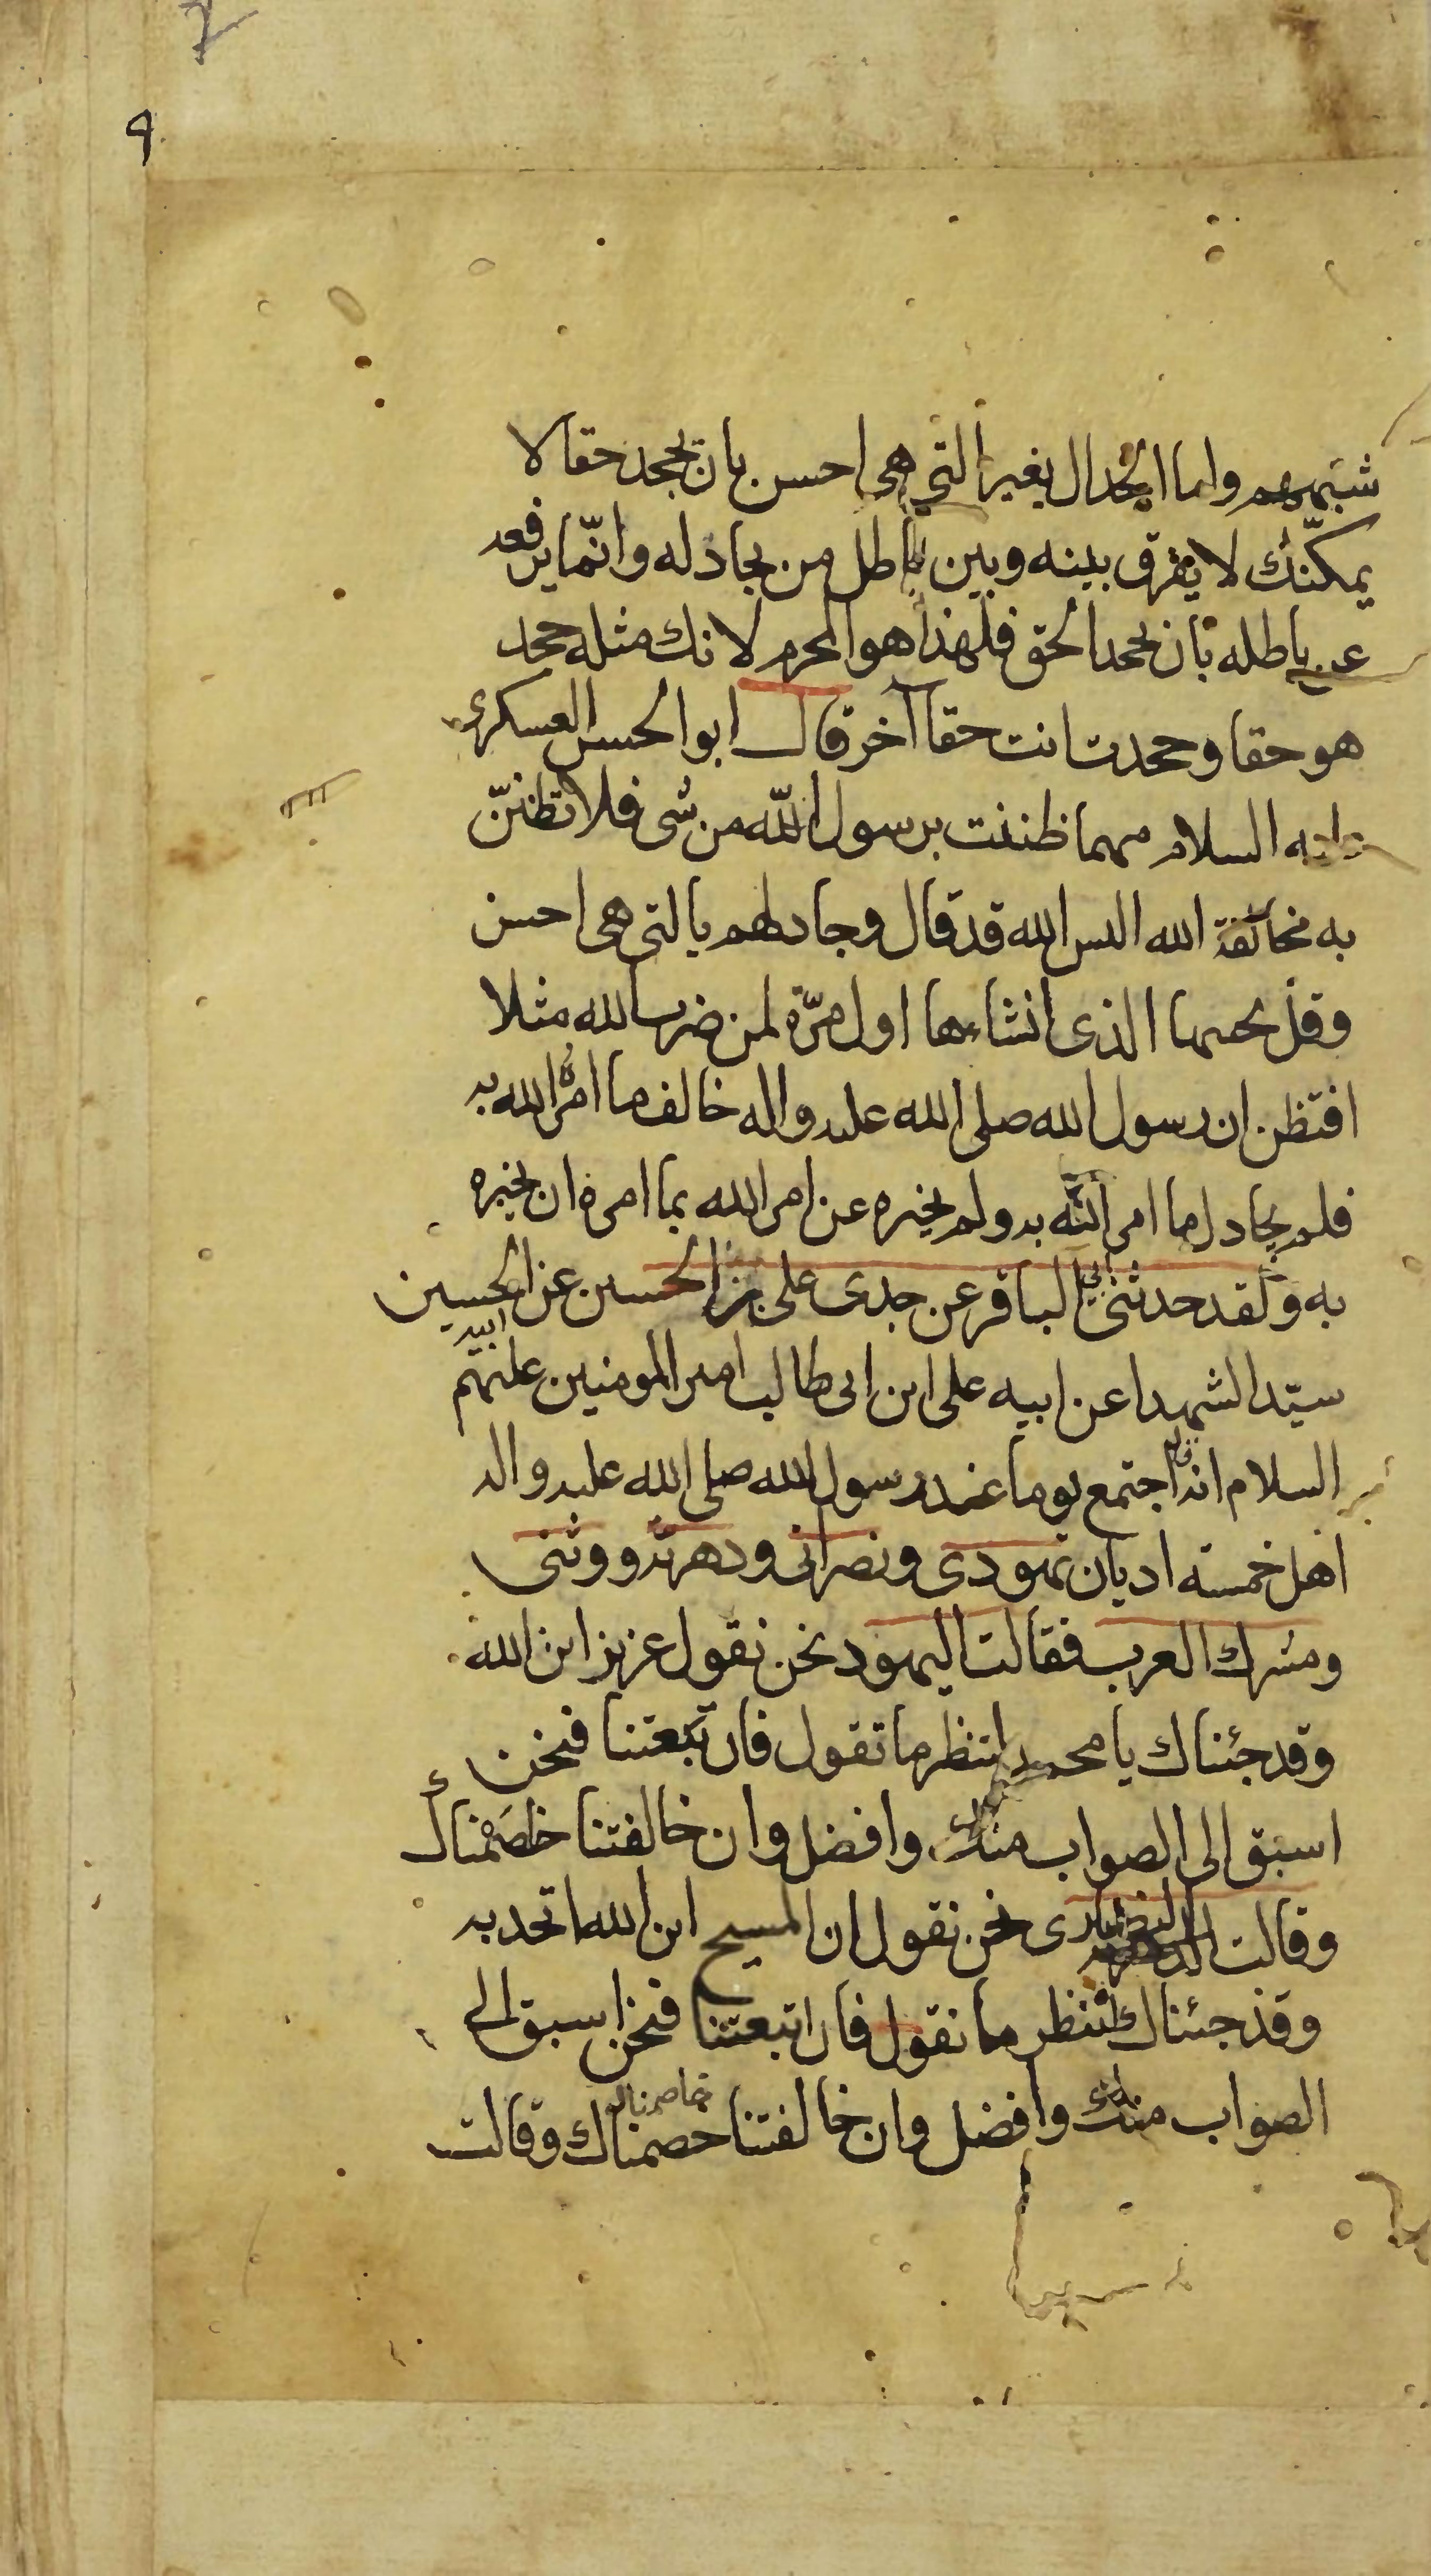 ٩
شبههم واما الجدال بغير التي هي احسن بان تجحد حقا لا
يمكنك لا تفرق بينه وبين باطل من تجادله وانّما يرفعه
عن باطله بان تجحد الحق فلهذا هو المحرم لانك مثله جحد
هو حقا وجحدت انت حقا آخر قال ابو الحسن العسكرى
عليه السلام مهما ظننت برسول اللّه من شى فلا تظننّ
به مخالفة الله اليس الله قد قال وجادلهم بالتى هى احسن
وقل يحييها الذى انشاءها اول مرّة لمن ضرب لله مثلا
افتظن ان رسول الله صلى الله عليه واله خالف ما امره الله به
فلم يجادل بما امر اللّه به ولم يخبره عن امر الله بما امره ان يخبره
به ولقد حدثنى ابي الباقر عن جدى على بن الحسين عن ابيه الحسين
سيّد الشهدا عن ابيه على ابن ابى طالب امير المومنين عليهم
السلام انه قال اجتمع يوما عند رسول الله صلى الله عليه واله
اهل خمسة اديان يهودى ونصرانى ودهرية ووثنى
ومشرك العرب فقالت اليهود نحن نقول عزيز ابن الله
وقد جئناك يا محمد لننظر ما تقول فان تبعتنا فنحن
اسبق الى الصواب منك وافضل وان خالفتنا خاصَمْناك
وقالت النصارى نحن نقول ان المسيح ابن الله اتحد به
وقد جئناك لننظر ما نقول فان اتبعتنا فنحن اسبق الى
الصواب منك وافضل وان خالفتنا خصمناك خاصمناك وقالت